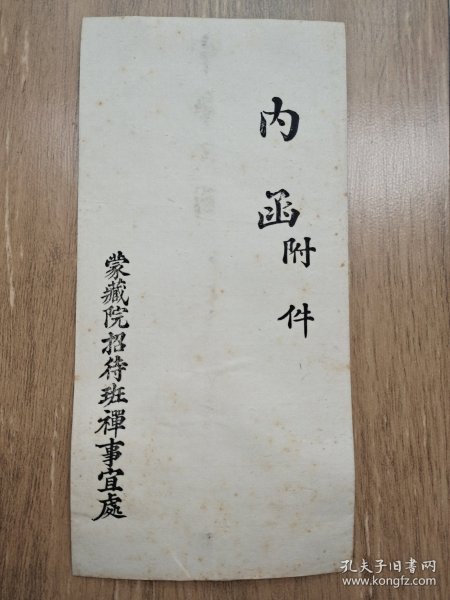 内函附件
蒙藏院招待班禪事宜處
孔夫子旧书网
www.kongfz.com